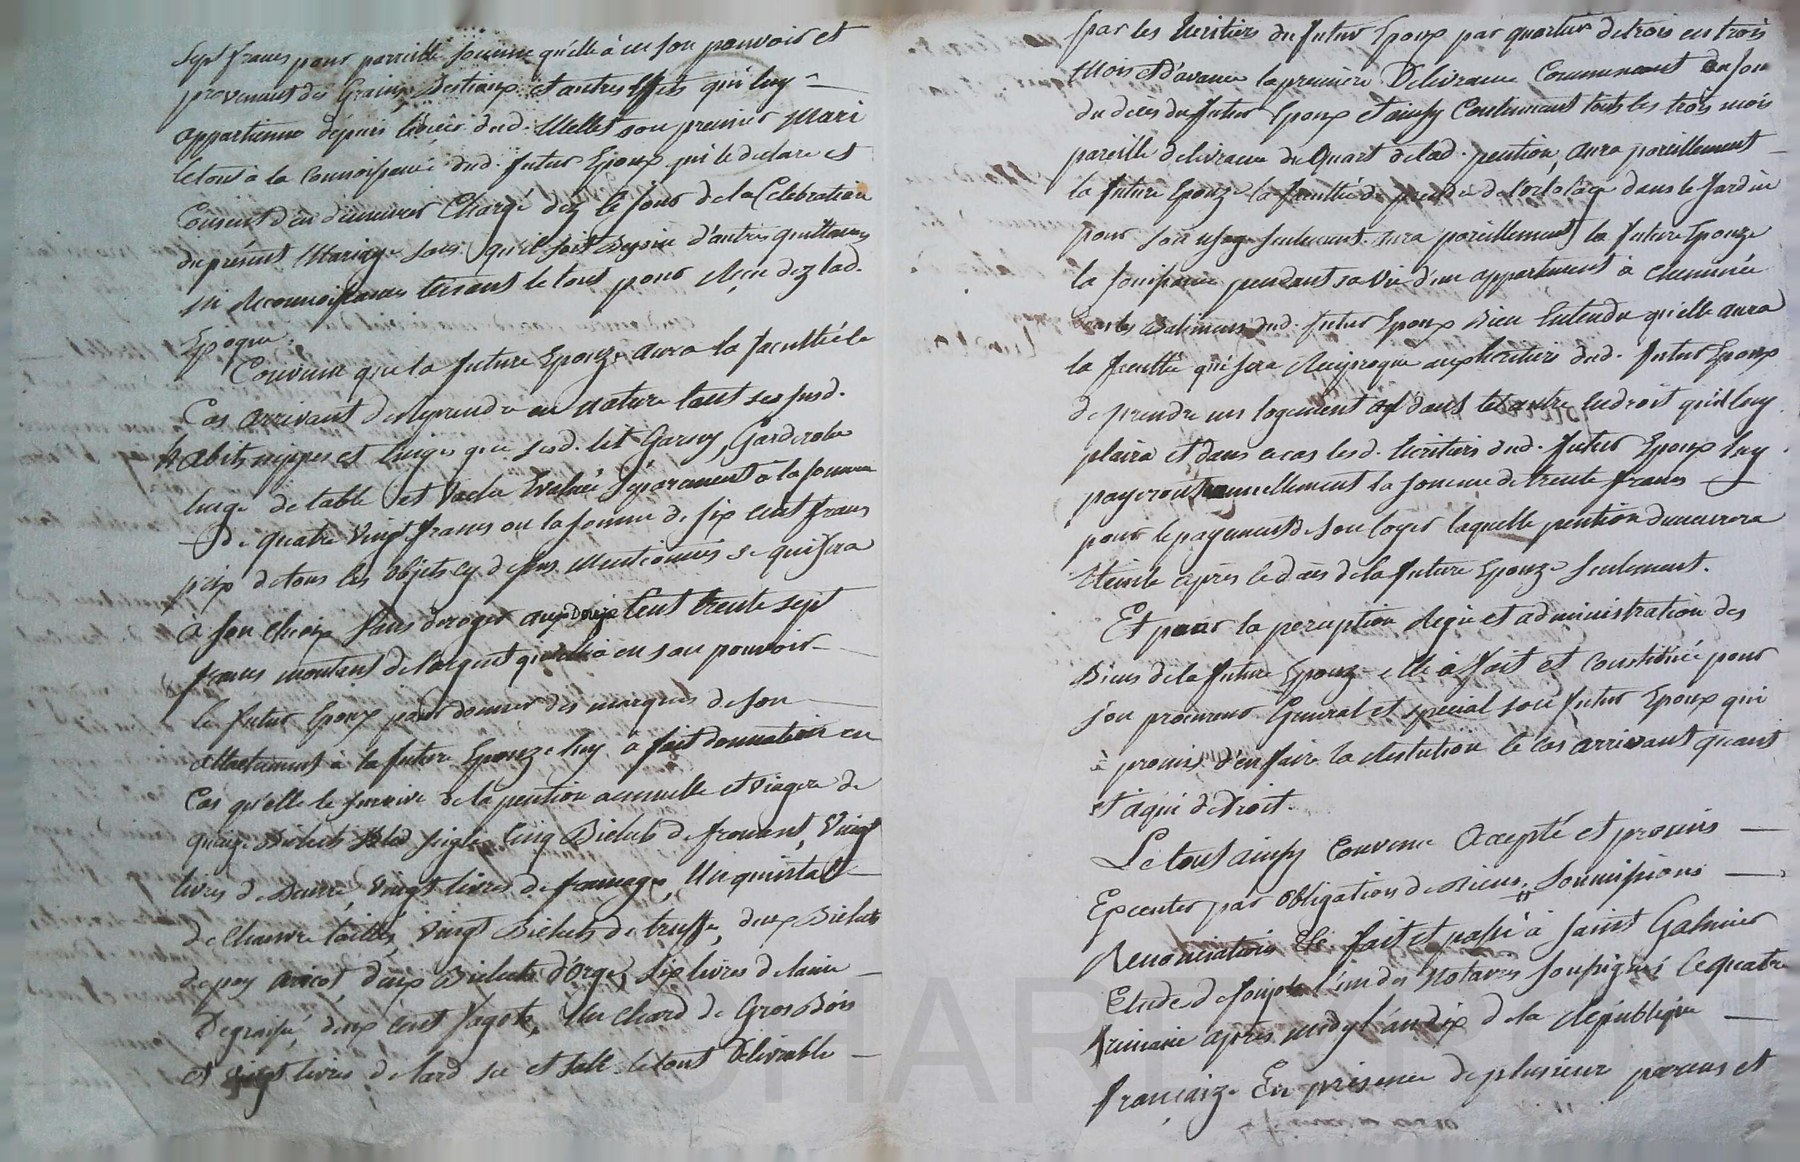 Sept francs pour pareille somme qu'elle à en son pouvoir et
provenant des Grains, Bestiaux et autres effets qui luy
appartienne depuis le décès dud. Mellet son premier Mari
le tout à la connoissance dud. futur Epoux qui le declare et
Consent d'en demeurer Chargé dez le jour de la Celebration
du présent Mariage sans qu'il soit Besoin d'autres quittances
ni Reconnoissances tenant le tout pour Reçu dez lad.
Epoque.
Convenu que la future Epouze aura la faculté le
Cas arrivant de Reprendre en nature tant ses susd.
habits nippes et linges que sesd. lit Garny, Garderobe
linge de table et Vache Evaluée séparament à la somme
de quatre Vingt francs ou la somme de six cent francs
prix de tous les objets cy dessus mentionnés ce qui sera
à son choix sans deroger aux Cent trente sept
francs montant de l'argent qu'elle à en son pouvoir
le futur Epoux pour donner des marques de son
attachement à la future Epouze luy à fait donnation en
Cas qu'elle le survive de la pention annuelle et viagere de
quinze Bichets Bled seigle Cinq Bichets de froment, Vingt
livres de Beurre, Vingt livres de fromage, Un quintal
de Chanvre taillé, Vingt Bichets de truffe, deux Bichets
de poy aricot, deux Bichets d'orge, six livres de laine
Degraissé, deux cent fagots, Un Chard de Gros Bois
et Vingt livres de lard sec et salé le tout Delivrable
par les héritiers du futur Epoux par quartier de trois en trois
Mois et d'avance la première Delivrance Commencant
du deces du futur Epoux et ainsy Continuant tous les trois mois
pareille delivrance du Quart de lad. pention, aura pareillement
la future Epouze la faculté de prendre de l'ortolage dans le Jardin
pour son usage seulement. aura pareillement la future Epouze
la jouissance pendant sa vie d'un appartement à cheminée
dans les Batimens dud. futur Epoux Bien Entendu qu'elle aura
la faculté qui sera Reciproque aux heritiers dud. futur Epoux
de prendre un logement dans tel autre endroit qu'il luy
plaira et dans ce cas lesd. heritiers dud. futur Epoux luy
payeront annuellement la somme de trente francs
pour le payement de son loyer laquelle pention demeurera
Eteinte après le deces de la future Epouze seulement.
Et pour la perception Regie et administration des
Biens de la future Epouze elle à fait et constitué pour
son procureur General et special son futur Epoux qui
à promis d'en faire la Restitution le cas arrivant quant
et à qui de droit.
Le tout ainsy Convenu accepté et promis
Executer par obligation de Biens, soumissions
Renonciations fait et passé à Saint Galmier
Etude de l'un des Notaires soussignés le quatre
frimaire après midy l'an dix de la République
françaize En présence de plusieur parens et